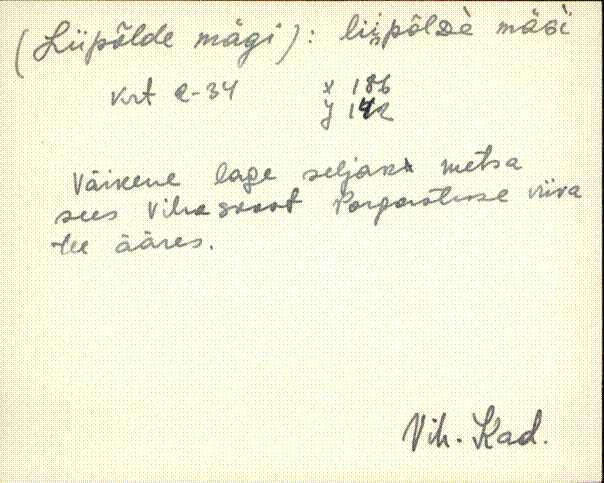 (Liipõlde mägi): liipõlDè mäGì
krt R-34 x 186
y 142
Väikene lage seljak metsa
sees Vihasoost Pargastusse viiva
tee ääres.
Vih. Kad.